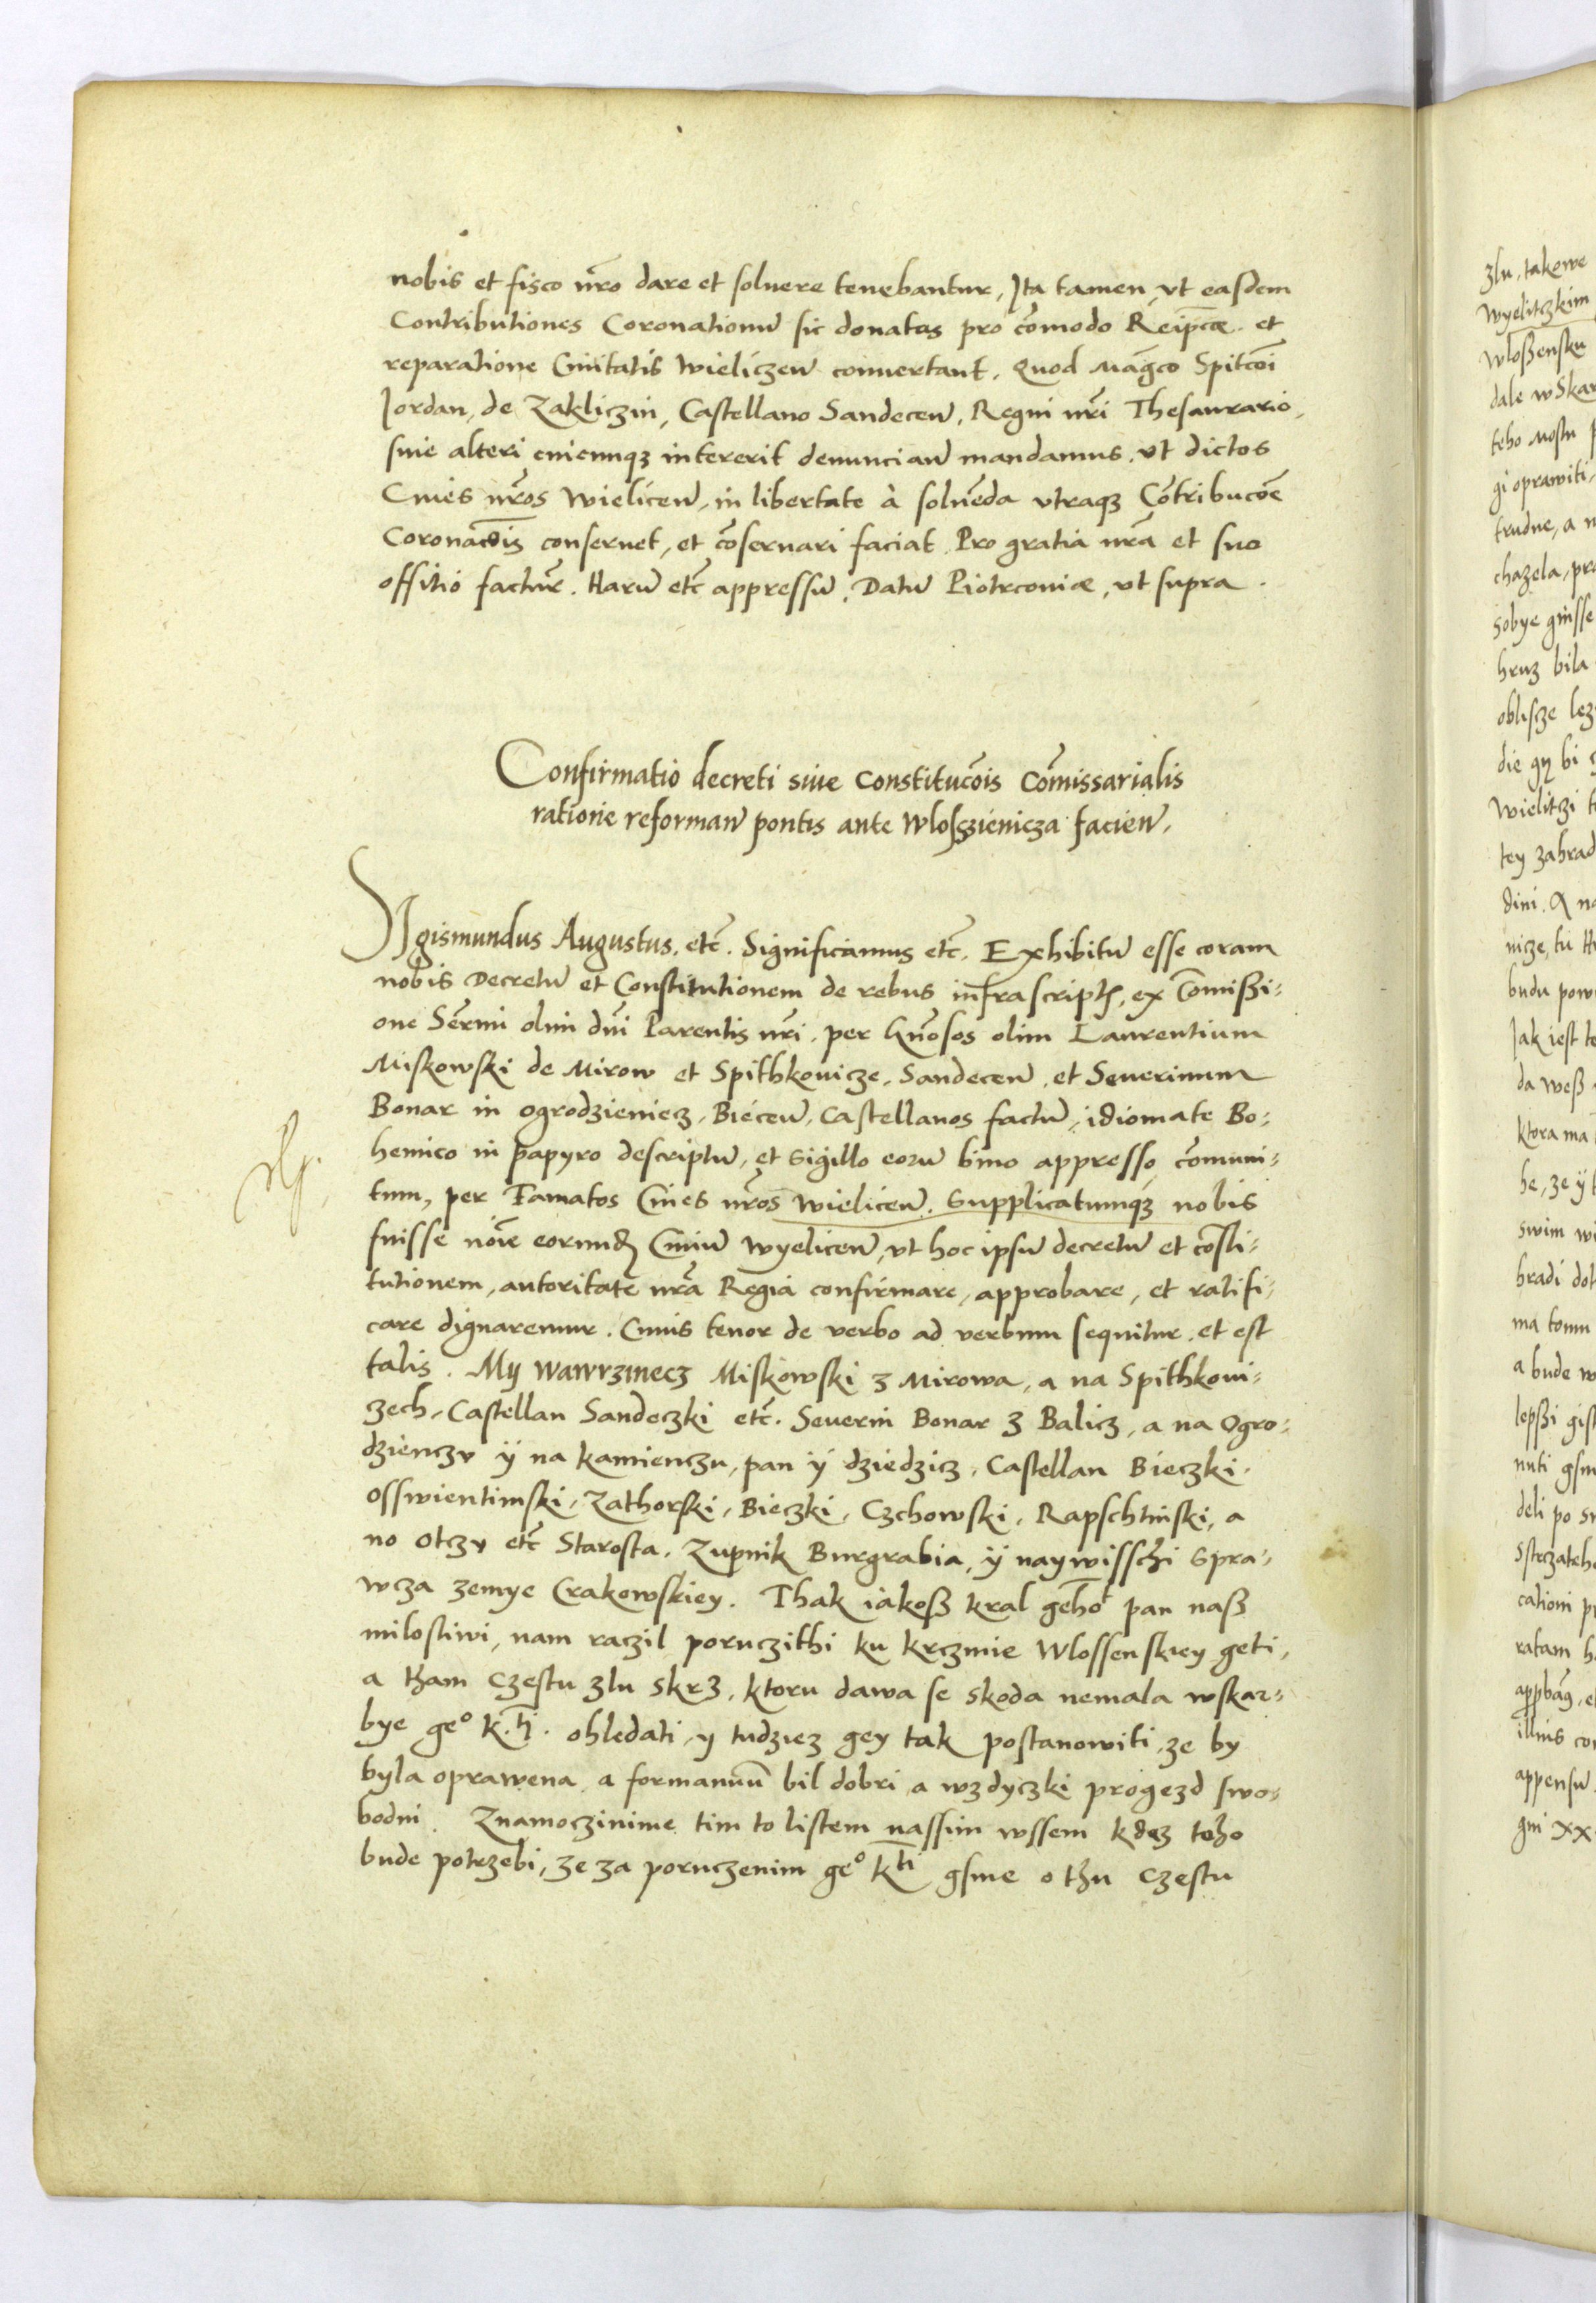 nobis et fisco nr̃o dare et soluere tenebantur, Ita tamen, vt easdem
Contributiones Coronationũ sic donatas pro cõmodo Reipcæ. et
reparatione Ciuitatis Wieliczeñ conuertant. Quod Magco Spitconi
Iordan, de Zakliczin, Castellano Sandeceñ, Regni nr̃i Thesaurario,
siue alteri cuicunqз intererit denunciañ mandamus, vt dictos
Ciues nr̃os Wieliceñ, in libertate à soluẽda vtraqз Cõtribucõe
Coronacõis conseruet, et cõseruari faciat. Pro gratia nr̃a et suo
offitio factur̃. Harũ etc̃ appressũ. Datũ Piotrcouiæ, vt supra.
Confirmatio decreti siue Constitucõis Cõmissarialis
ratione reformañ pontis ante Wlosszienicza facieñ.
SIgismundus Augustus, etc̃. Significamus etc̃. Exhibitũ esse coram
nobis Decretũ et Constitutionem de rebus infrascriptꝭ, ex Cõmißi:
one Ser̃mi olim dñi Parentis nr̃i, per Gñosos olim Laurentium
Miskowski de Mirow et Spithkouicze, Sandeceñ, et Seuerinum
Bonar in Ogrodzieniecz, Bieceñ, Castellanos factũ, idiomate Bo:
hemico in papyro descriptũ, et Sigillo eorũ bino appresso, cõmuni:
tum, per Famatos Ciues nr̃os Wieliceñ. Supplicatumqз nobis
fuisse nõie eorundꝫ Ciuiũ Wyeliceñ, vt hoc ipsũ decretũ et cõsti:
tutionem, autoritate nr̃a Regia confirmare, approbare, et ratifi:
care dignaremur. Cuius tenor de verbo ad verbum sequitur, et est
talis. My Wawrzinecz Miskowski z Mirowa, a na Spithkoui:
zech, Castellan Sandeczki etc̃. Seuerin Bonar z Balicz, a na Ogro:
dzienczv ÿ na kamienczu, pan ÿ dziedzicz, Castellan Bieczki,
Osswientimski, Zathorski, Bieczki, Czchowski, Rapschtinski, a
no Otczv etc̃ Starosta, Zupnik Burgrabia, ÿ naywisschi Spra:
wcza zemye Crakowskiey. Thak iakoß kral geho᷑ pan naß
milostiwi, nam raczil poruczithi ku krczmie Wlossenskiey geti,
a tham Czestu zlu skrz, ktoru dawa se skoda nemala wskar:
bye ge° k.ti. ohledati, y tudziez gey tak postanowiti, ze by
byla oprawena a formanuũ bil dobri, a wzdyczki progezd swo:
bodni. Znamoczinime tim to listem nassim wssem kdez toho
bude potrzebi, ze za poruczenim ge° kti gsme o thu Czestu
zlu, takowe
Wyelitczkim
Wloßensku
teho Mostu
gi oprawiti,
trudne, a
chazela,
sobye ginsse
hruz bila
oblisze
die gẏ bi
Wielitzi
tey zahrad
dini. A
budu
Iak iest
da weß
ktora ma
he, ze ÿ
swim
bradi
ma tomu
a bude
lepßi
nuti
deli po
cationi
ratam
illius
appensũ